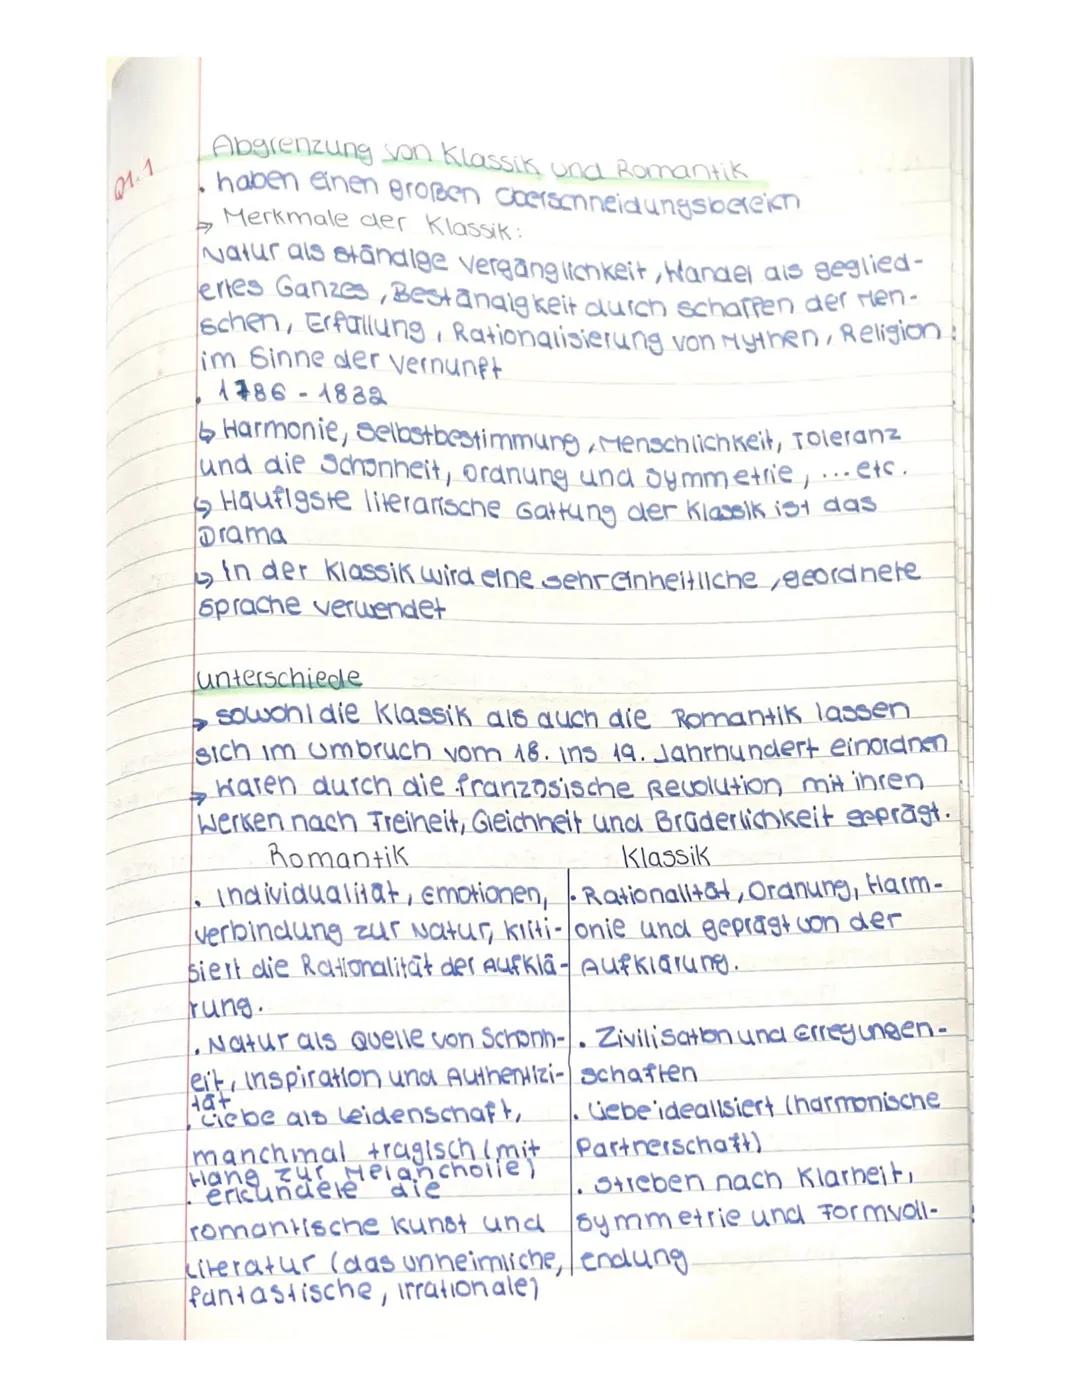 Q1.1
Abgrenzung von Klassik und Romantik
• haben einen großen Überschneidungsbereich
→ Merkmale der Klassik:
Natur als ständige Vergänglichkeit, Wandel als geglied-
ertes Ganzes, Beständigkeit durch schaffen der Men-
schen, Erfüllung, Rationalisierung von Mythen, Religion
im Sinne der Vernunft
• 1786 - 1832
↳ Harmonie, Selbstbestimmung, Menschlichkeit, Toleranz
und die Schönheit, Ordnung und Symmetrie, ... etc.
↳ Häufigste literarische Gattung der Klassik ist das
Drama
↳ In der Klassik wird eine sehr einheitliche, geordnete
Sprache verwendet
Unterschiede
→ sowohl die Klassik als auch die Romantik lassen
sich im Umbruch vom 18. ins 19. Jahrhundert einordnen
→ Waren durch die französische Revolution mit ihren
Werken nach Freiheit, Gleichheit und Brüderlichkeit geprägt.
Romantik
• Individualität, Emotionen,
Verbindung zur Natur, kriti-
siert die Rationalität der Aufklä-
rung.
• Natur als Quelle von Schönh-
eit, Inspiration und Authentizi-
tät
• Liebe als Leidenschaft,
manchmal tragisch (mit
Hang zur Melancholie)
• erkundete die
romantische Kunst und
Literatur (das unheimliche,
fantastische, irrationale)
Klassik
• Rationalität, Ordnung, Harm-
onie und geprägt von der
Aufklärung.
• Zivilisation und Erregungen-
schaften
• Liebe idealisiert (harmonische
Partnerschaft)
• Streben nach Klarheit,
Symmetrie und Formvoll-
endung